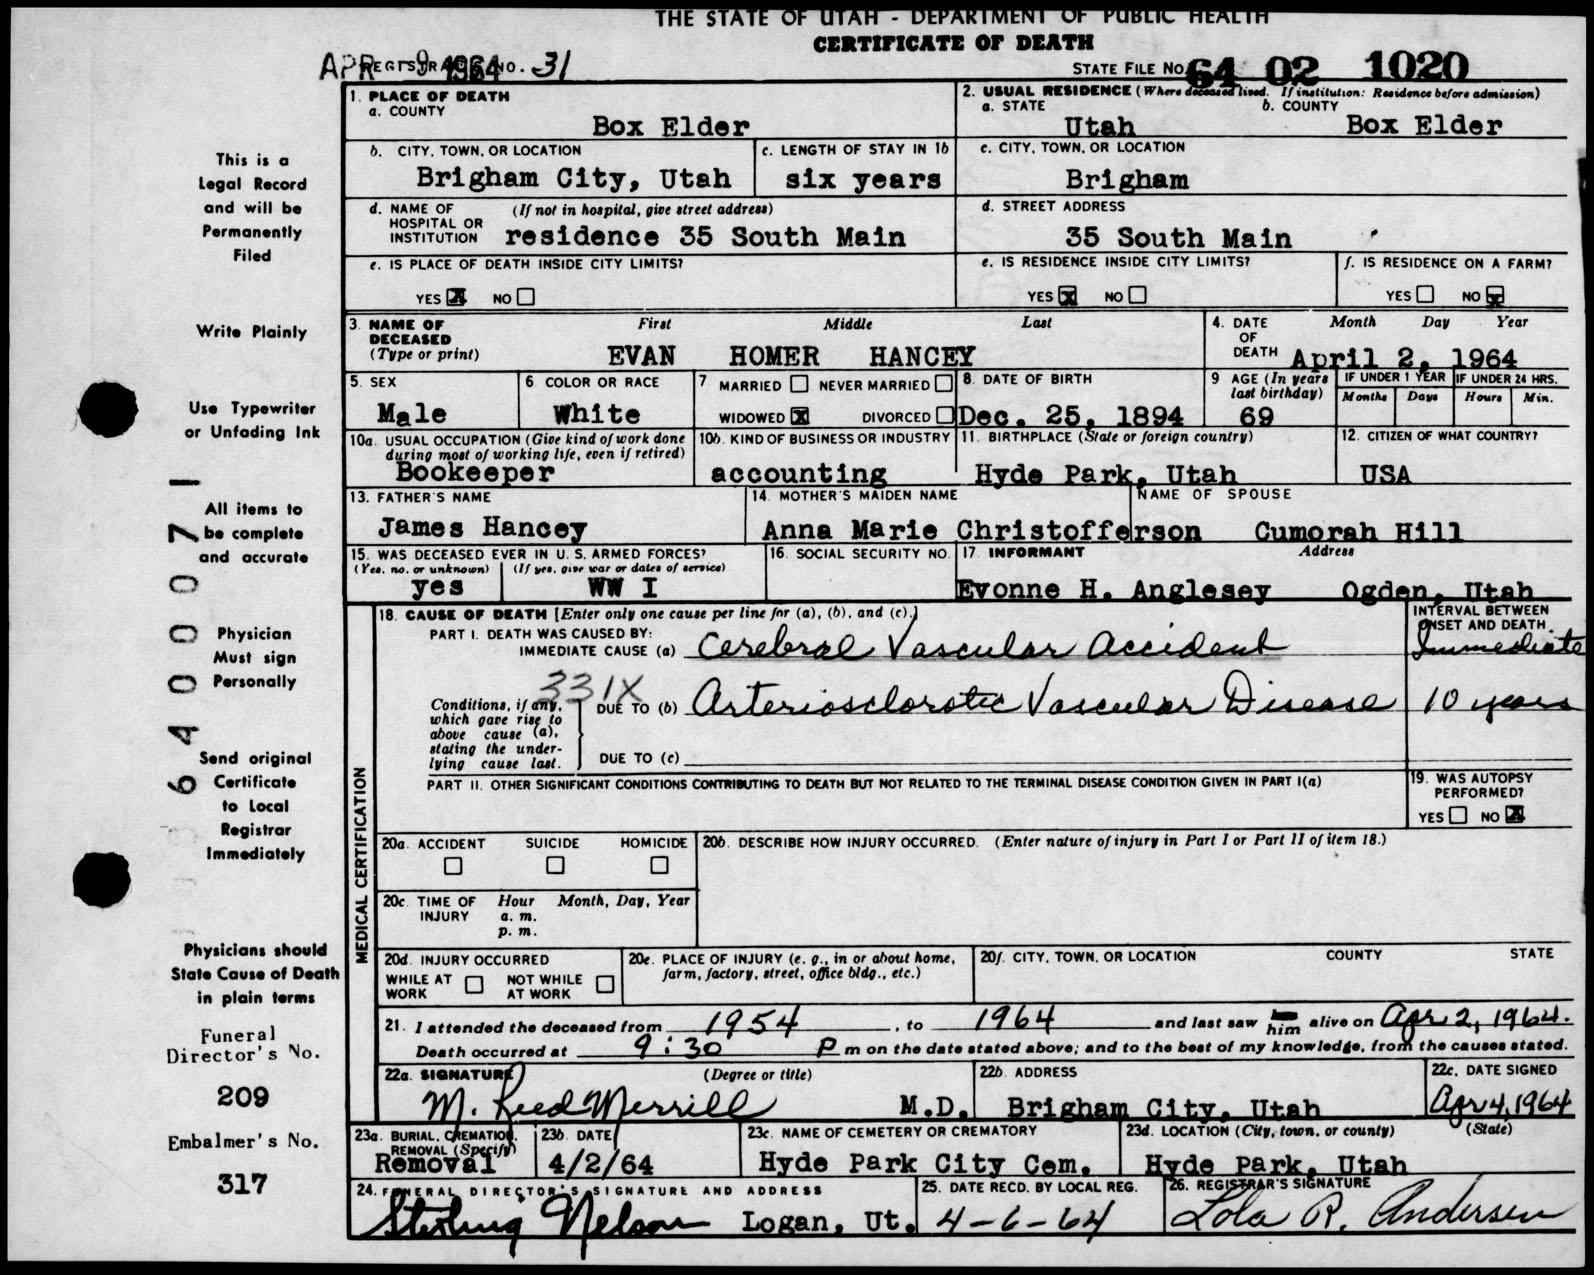 THE STATE OF UTAH - DEPARTMENT OF PUBLIC HEALTH
CERTIFICATE OF DEATH
APR 9 1964
REGISTRAR'S NO. 31
STATE FILE NO. 64 02 1020
This is a
Legal Record
and will be
Permanently
Filed
Write Plainly
Use Typewriter
or Unfading Ink
All items to
be complete
and accurate
Physician
Must sign
Personally
Send original
Certificate
to Local
Registrar
Immediately
Physicians should
State Cause of Death
in plain terms
Funeral
Director's No.
209
Embalmer's No.
317
6400071
1. PLACE OF DEATH
a. COUNTY
Box Elder
2. USUAL RESIDENCE (Where deceased lived. If institution: Residence before admission)
a. STATE b. COUNTY
Utah Box Elder
b. CITY, TOWN, OR LOCATION
Brigham City, Utah
c. LENGTH OF STAY IN 1b
six years
c. CITY, TOWN, OR LOCATION
Brigham
d. NAME OF HOSPITAL OR INSTITUTION (If not in hospital, give street address)
residence 35 South Main
d. STREET ADDRESS
35 South Main
e. IS PLACE OF DEATH INSIDE CITY LIMITS?
YES X NO
e. IS RESIDENCE INSIDE CITY LIMITS?
YES X NO
f. IS RESIDENCE ON A FARM?
YES NO X
3. NAME OF DECEASED (Type or print)
First Middle Last
EVAN HOMER HANCEY
4. DATE OF DEATH Month Day Year
April 2, 1964
5. SEX
Male
6. COLOR OR RACE
White
7 MARRIED NEVER MARRIED
WIDOWED X DIVORCED
8. DATE OF BIRTH
Dec. 25, 1894
9 AGE (In years last birthday)
69
IF UNDER 1 YEAR
Months Days
IF UNDER 24 HRS.
Hours Min.
10a. USUAL OCCUPATION (Give kind of work done during most of working life, even if retired)
Bookeeper
10b. KIND OF BUSINESS OR INDUSTRY
accounting
11. BIRTHPLACE (State or foreign country)
Hyde Park, Utah
12. CITIZEN OF WHAT COUNTRY?
USA
13. FATHER'S NAME
James Hancey
14. MOTHER'S MAIDEN NAME
Anna Marie Christofferson
NAME OF SPOUSE
Cumorah Hill
15. WAS DECEASED EVER IN U. S. ARMED FORCES?
(Yes, no, or unknown) (If yes, give war or dates of service)
yes WW I
16. SOCIAL SECURITY NO.
17. INFORMANT Address
Evonne H. Anglesey Ogden, Utah
MEDICAL CERTIFICATION
18. CAUSE OF DEATH [Enter only one cause per line for (a), (b), and (c).]
INTERVAL BETWEEN ONSET AND DEATH
PART I. DEATH WAS CAUSED BY:
IMMEDIATE CAUSE (a) Cerebral Vascular Accident Immediate
331X
Conditions, if any, which gave rise to above cause (a), stating the underlying cause last.
DUE TO (b) Arteriosclorotic Vascular Disease 10 years
DUE TO (c)
PART II. OTHER SIGNIFICANT CONDITIONS CONTRIBUTING TO DEATH BUT NOT RELATED TO THE TERMINAL DISEASE CONDITION GIVEN IN PART I(a)
19. WAS AUTOPSY PERFORMED?
YES NO X
20a. ACCIDENT SUICIDE HOMICIDE
20b. DESCRIBE HOW INJURY OCCURRED. (Enter nature of injury in Part I or Part II of item 18.)
20c. TIME OF INJURY Hour Month, Day, Year
a. m.
p. m.
20d. INJURY OCCURRED
WHILE AT WORK NOT WHILE AT WORK
20e. PLACE OF INJURY (e. g., in or about home, farm, factory, street, office bldg., etc.)
20f. CITY, TOWN, OR LOCATION COUNTY STATE
21. I attended the deceased from 1954, to 1964 and last saw him alive on Apr 2, 1964.
Death occurred at 9:30 P m on the date stated above; and to the best of my knowledge, from the causes stated.
22a. SIGNATURE (Degree or title)
M. Reed Merrill M.D.
22b. ADDRESS
Brigham City, Utah
22c. DATE SIGNED
Apr 4, 1964
23a. BURIAL, CREMATION, REMOVAL (Specify)
Removal
23b. DATE
4/2/64
23c. NAME OF CEMETERY OR CREMATORY
Hyde Park City Cem.
23d. LOCATION (City, town, or county) (State)
Hyde Park, Utah
24. FUNERAL DIRECTOR'S SIGNATURE AND ADDRESS
Sterling Nelson Logan, Ut.
25. DATE RECD. BY LOCAL REG.
4-6-64
26. REGISTRAR'S SIGNATURE
Lola R. Andersen